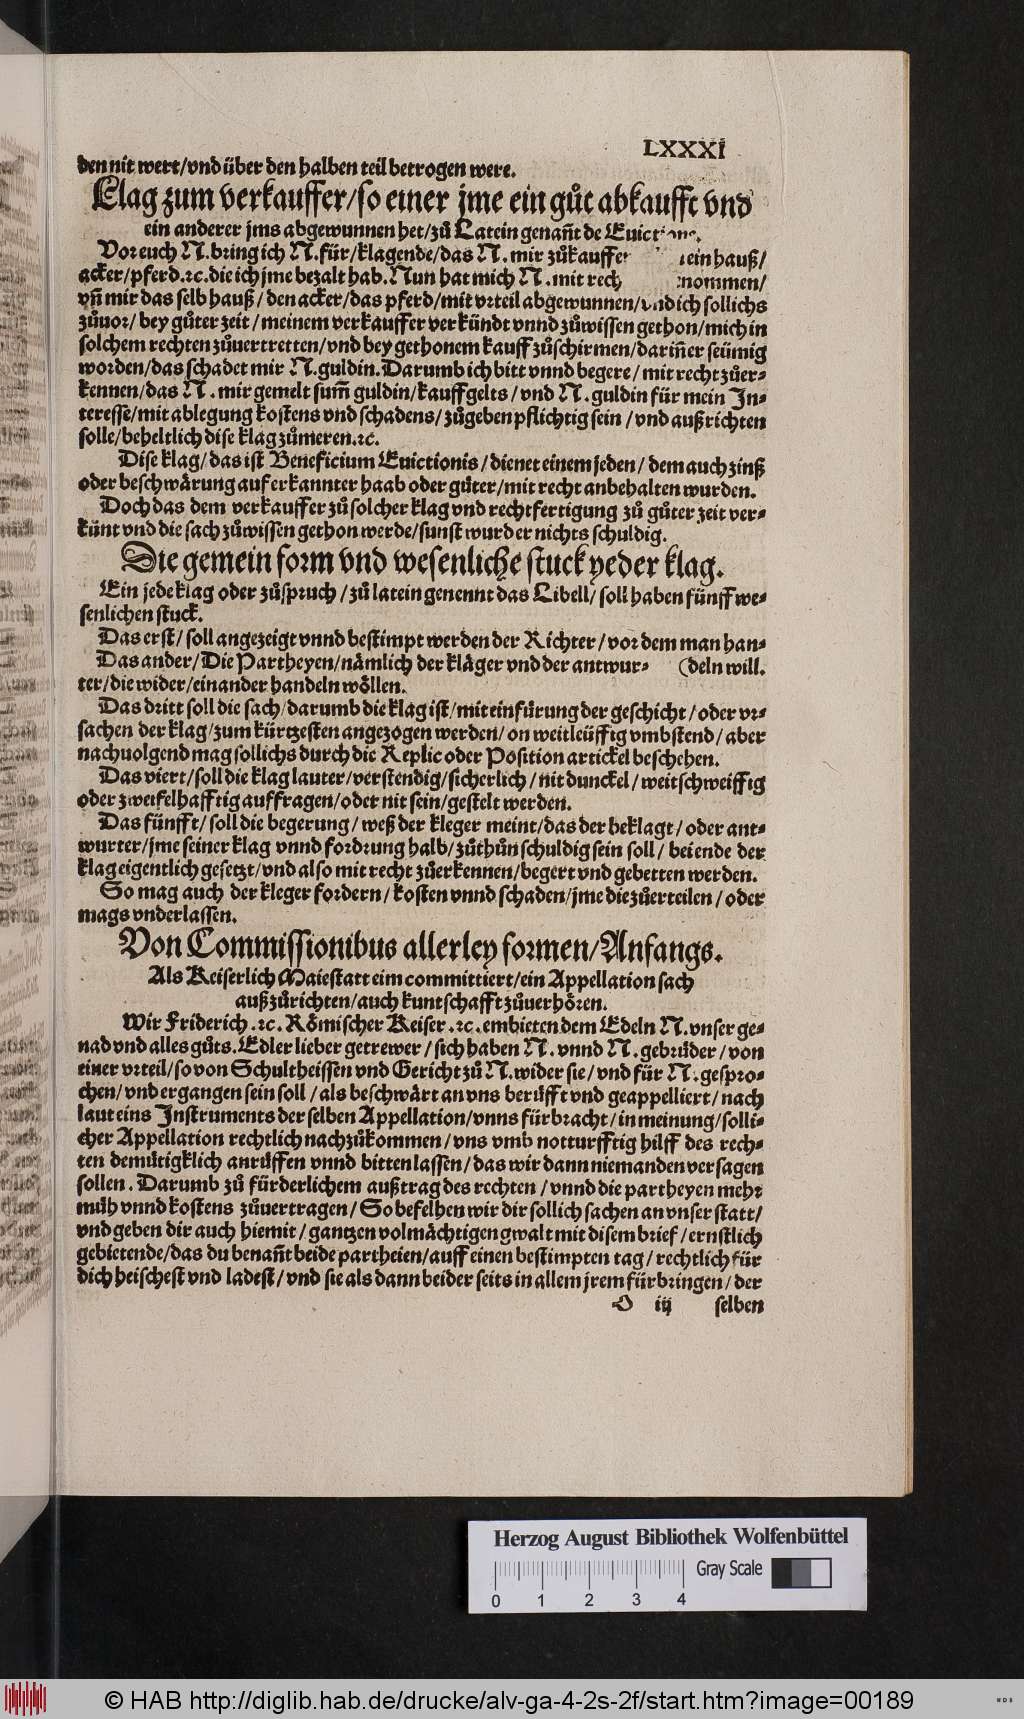 LXXXI
den nit wert/vnd über den halben teil betrogen were.
Clag zum verkauffer/so einer jme ein gůt abkaufft vnd
ein anderer jms abgewunnen het/zů Latein genañt de Euictione.
Vor euch N. bring ich N. für/klagende/das N. mir zůkauffen ein hauß/
acker/pferd.ꝛc.die ich jme bezalt hab. Nun hat mich N. mit nommen/
vñ mir das selb hauß/den acker/das pferd/mit vrteil abgewunnen/vnd ich sollichs
zůuor/bey gůter zeit/meinem verkauffer verkündt vnnd zůwissen gethon/mich in
solchem rechten zůuertretten/vnd bey gethonem kauff zůschirmen/dariñer seümig
worden/das schadet mir N. guldin. Darumb ich bitt vnnd begere/mit recht zůer⸗
kennen/das N. mir gemelt sum̃ guldin/kauffgelts/vnd N. guldin für mein In⸗
teresse/mit ablegung kostens vnd schadens/zůgeben pflichtig sein/vnd außrichten
solle/beheltlich dise klag zůmeren.ꝛc.
Dise klag/das ist Beneficium Euictionis/dienet einem jeden/dem auch zinß
oder beschwärung auf erkannter haab oder güter/mit recht anbehalten wurden.
Doch das dem verkauffer zů solcher klag vnd rechtfertigung zů gůter zeit ver⸗
künt vnd die sach zůwissen gethon werde/sunst wurd er nichts schuldig.
Die gemein form vnd wesenliche stuck yeder klag.
Ein jede klag oder zůspruch/zů latein genennt das Libell/soll haben fünff we⸗
senlichen stuck.
Das erst/soll angezeigt vnnd bestimpt werden der Richter/vor dem man han⸗
Das ander/Die Partheyen/nämlich der kläger vnd der antwur⸗ (deln will.
ter/die wider/einander handeln wöllen.
Das dritt soll die sach/darumb die klag ist/mit einfürung der geschicht/oder vr⸗
sachen der klag/zum kürtzesten angezogen werden/on weitleüffig vmbstend/aber
nachuolgend mag sollichs durch die Replic oder Position artickel beschehen.
Das viert/soll die klag lauter/verstendig/sicherlich/nit dunckel/weitschweiffig
oder zweifelhafftig auffragen/oder nit sein/gestelt werden.
Das fünfft/soll die begerung/weß der kleger meint/das der beklagt/oder ant⸗
wurter/jme seiner klag vnnd fordrung halb/zůthůn schuldig sein soll/bei ende der
klag eigentlich gesetzt/vnd also mit recht zůerkennen/begert vnd gebetten werden.
So mag auch der kleger fordern/kosten vnnd schaden/jme die zůerteilen/oder
mags vnderlassen.
Von Commissionibus allerley formen/Anfangs.
Als Keiserlich Maiestatt eim committiert/ein Appellation sach
außzůrichten/auch kuntschafft zůuerhören.
Wir Friderich.ꝛc. Römischer Keiser.ꝛc. embieten dem Edeln N. vnser ge⸗
nad vnd alles gůts. Edler lieber getrewer/sich haben N. vnnd N. gebrüder/von
einer vrteil/so von Schultheissen vnd Gericht zů N. wider sie/vnd für N. gespro⸗
chen/vnd ergangen sein soll/als beschwärt an vns berüfft vnd geappelliert/nach
laut eins Instruments der selben Appellation/vnns fürbracht/in meinung/solli⸗
cher Appellation rechtlich nachzůkommen/vns vmb notturfftig hilff des rech⸗
ten demütigklich anrüffen vnnd bitten lassen/das wir dann niemanden versagen
sollen. Darumb zů fürderlichem außtrag des rechten/vnnd die partheyen mehr
müh vnnd kostens zůuertragen/So befelhen wir dir sollich sachen an vnser statt/
vnd geben dir auch hiemit/gantzen volmächtigen gwalt mit disem brief/ernstlich
gebietende/das du benañt beide partheien/auff einen bestimpten tag/rechtlich für
dich heischest vnd ladest/vnd sie als dann beider seits in allem jrem fürbringen/der
O iij selben
Herzog August Bibliothek Wolfenbüttel
Gray Scale
0 1 2 3 4
© HAB http://diglib.hab.de/drucke/alv-ga-4-2s-2f/start.htm?image=00189